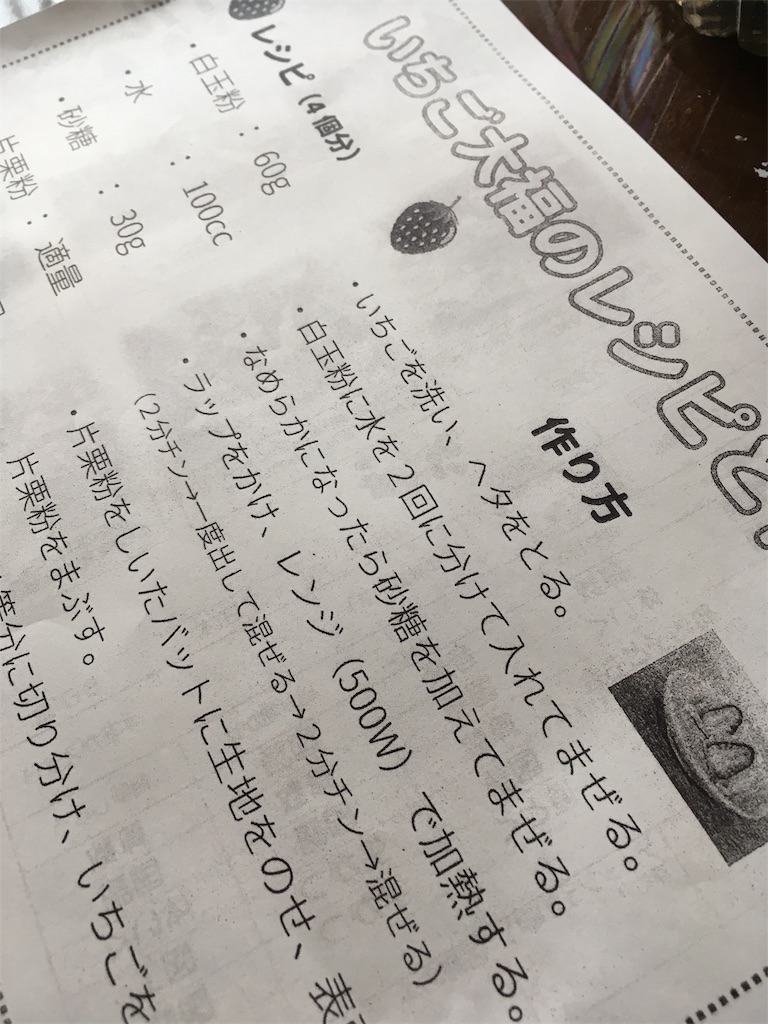 いちご大福のレシピと
レシピ（4個分）
・白玉粉 ： 60g
・水 ： 100cc
・砂糖 ： 30g
片栗粉 ： 適量
作り方
・いちごを洗い、ヘタをとる。
・白玉粉に水を２回に分けて入れてまぜる。
・なめらかになったら砂糖を加えてまぜる。
・ラップをかけ、レンジ（500W）で加熱する。
（2分チン→一度出して混ぜる→2分チン→混ぜる）
・片栗粉をしいたバットに生地をのせ、表
片栗粉をまぶす。
等分に切り分け、いちごを